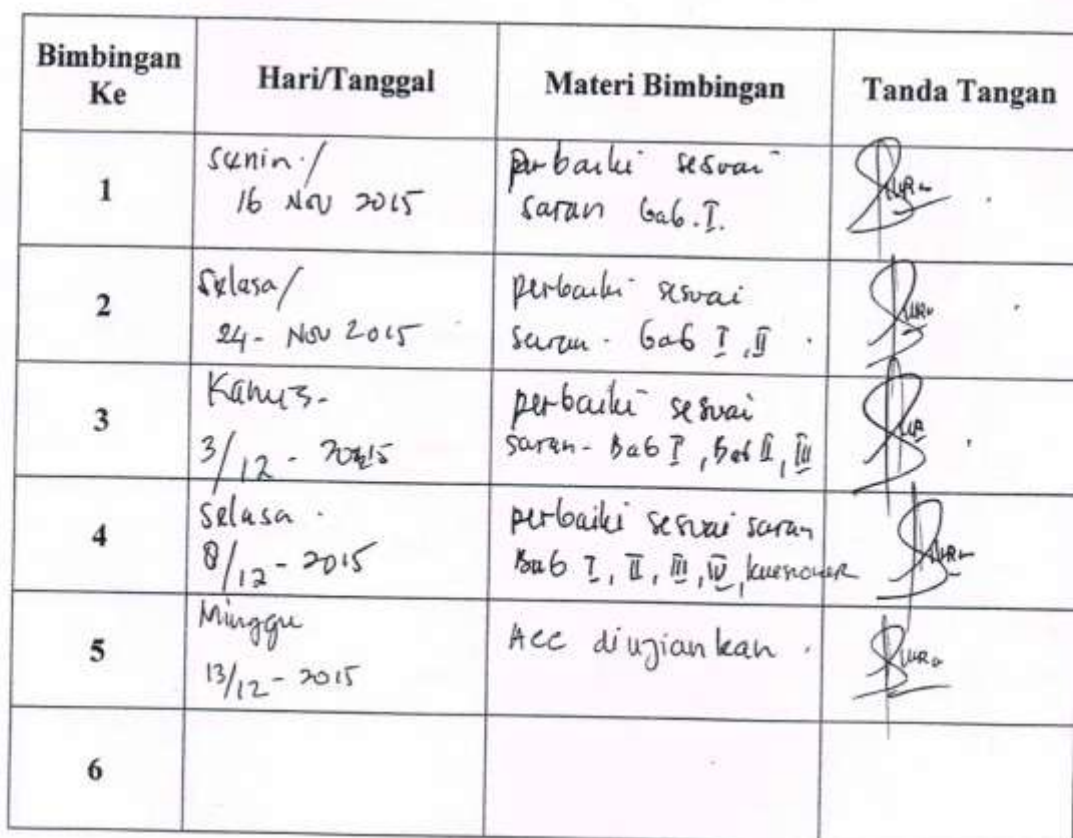 Bimbingan Ke
Hari/Tanggal
Materi Bimbingan
Tanda Tangan
1
Senin /
16 Nov 2015
perbaiki sesuai
saran bab. I.
2
Selasa /
24 - Nov 2015
perbaiki sesuai
saran - bab I, II
3
Kamis -
3/12 - 2015
perbaiki sesuai
saran - Bab I, Bab II, III
4
Selasa .
8/12 - 2015
perbaiki sesuai saran
Bab I, II, III, IV, kuesioner
5
Minggu
13/12 - 2015
Acc diujiankan .
6